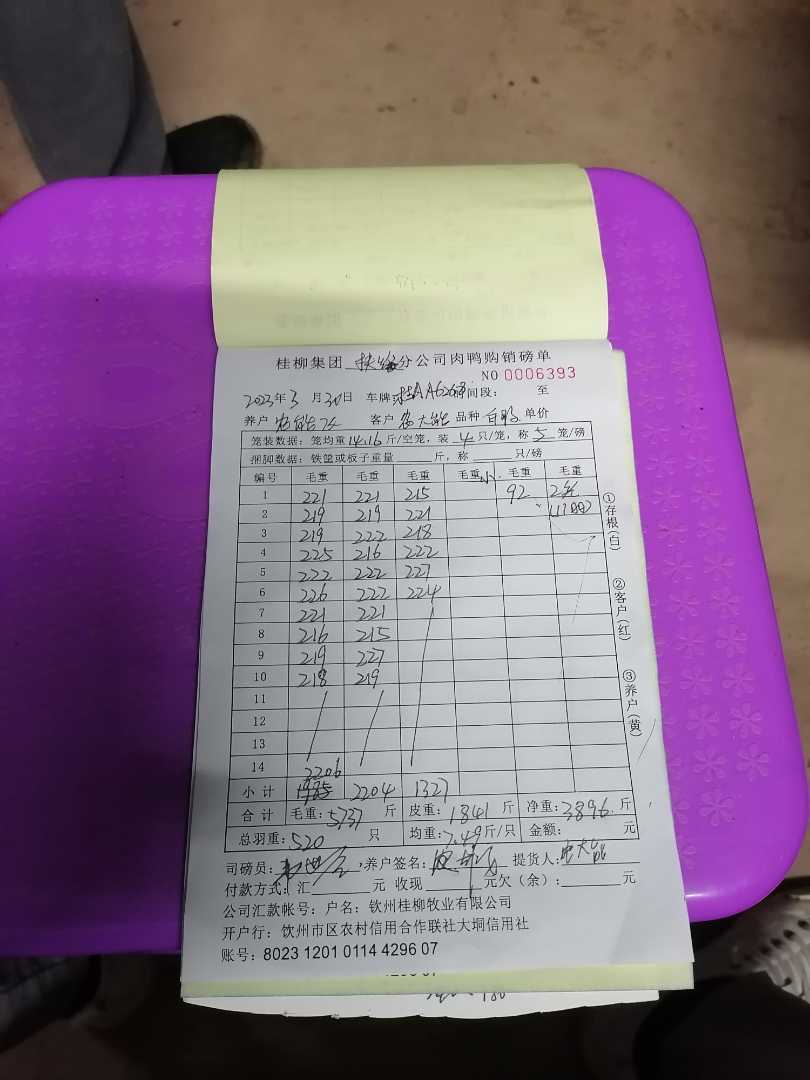 桂柳集团 扶绥分公司肉鸭购销磅单
NO 0006393
2023年3月30日 车牌 桂AA6268 时间段: 至
养户 客户 农大能 品种 白鸭 单价
笼装数据: 笼均重14.16斤/空笼, 装 4 只/笼, 称 5 笼/磅
捆脚数据: 铁筐或板子重量 斤, 称 只/磅
编号 毛重 毛重 毛重 毛重 小. 毛重 毛重
1 221 221 215 92 2
2 219 219 221
3 219 222 218
4 225 216 222
5 222 222 227
6 226 222 224
7 221 221
8 216 215
9 219 227
10 218 219
11
12
13
14
2206
小计 1985 2204 1327
合计 毛重: 5737 斤 皮重: 1841 斤 净重: 3896. 斤
总羽重: 520 只 均重: 7.49斤/只 金额: 元
司磅员: ,养户签名: 提货人: 农大能
付款方式: 汇 元 收现 元欠(余): 元
公司汇款帐号: 户名: 钦州桂柳牧业有限公司
开户行: 钦州市区农村信用合作联社大垌信用社
账号: 8023 1201 0114 4296 07
①存根(白)
②客户(红)
③养户(黄)